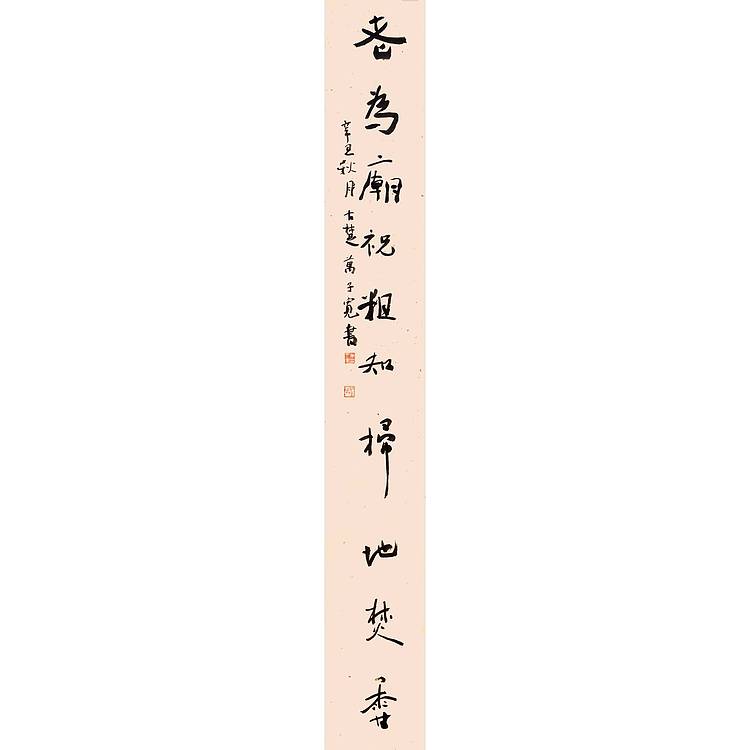 老為廟祝粗知掃地焚香
辛丑秋月古楚萬子寬書